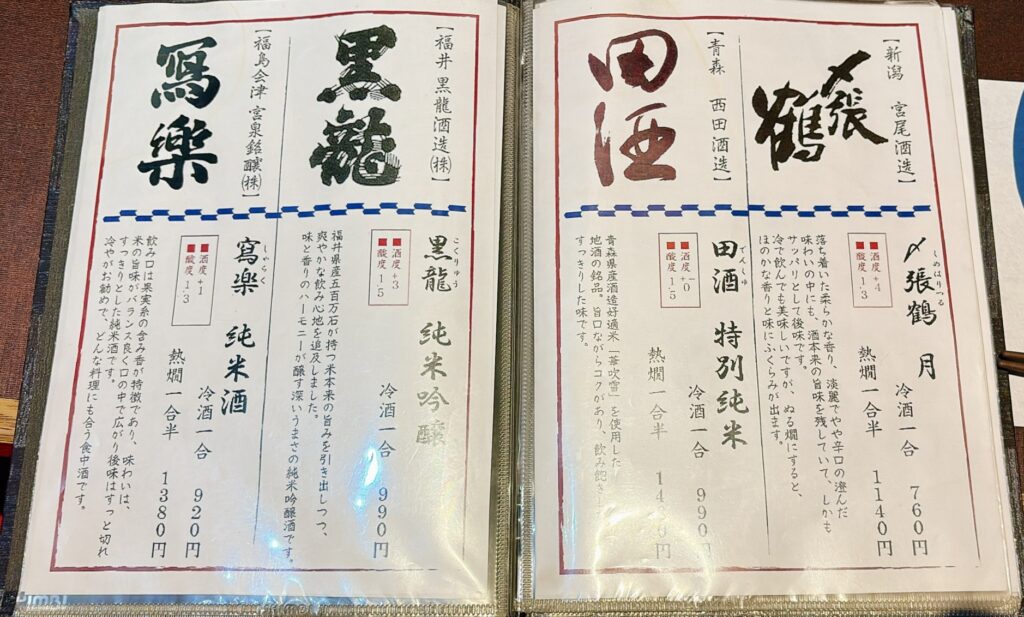 【新潟 宮尾酒造】
〆張鶴
しめはりつる
〆張鶴 月
■酒度+4
■酸度1.3
冷酒一合 760円
熱燗一合半 1140円
落ち着いた柔らかな香り、淡麗でやや辛口の澄んだ
味わいの中にも、酒本来の旨味を残していて、しかも
サッパリとして後味です。
冷で飲んでも美味しいですが、ぬる燗にすると、
ほのかな香りと味にふくらみが出ます。
【青森 西田酒造】
田酒
でんしゅ
田酒 特別純米
■酒度±0
■酸度1.5
冷酒一合 990円
熱燗一合半
青森県産酒造好適米「華吹雪」を使用した
地酒の銘品。旨口ながらコクがあり、飲み飽き
すっきりした味です。
【福井 黒龍酒造㈱】
黒龍
こくりゅう
黒龍 純米吟醸
■酒度+3
■酸度1.5
冷酒一合 990円
福井県産五百万石が持つ米本来の旨みを引き出しつつ、
爽やかな飲み心地を追及しました。
味と香りのハーモニーが醸す深いうまさの純米吟醸酒です。
【福島会津 宮泉銘醸㈱】
寫樂
しゃらく
寫樂 純米酒
■酒度+1
■酸度1.3
冷酒一合 920円
熱燗一合半 1380円
飲み口は果実系の含み香が特徴であり、味わいは、
米の旨味がバランス良く口の中で広がり後味はすっと切れ
すっきりとした純米酒です。
冷やがお勧めで、どんな料理にも合う食中酒です。